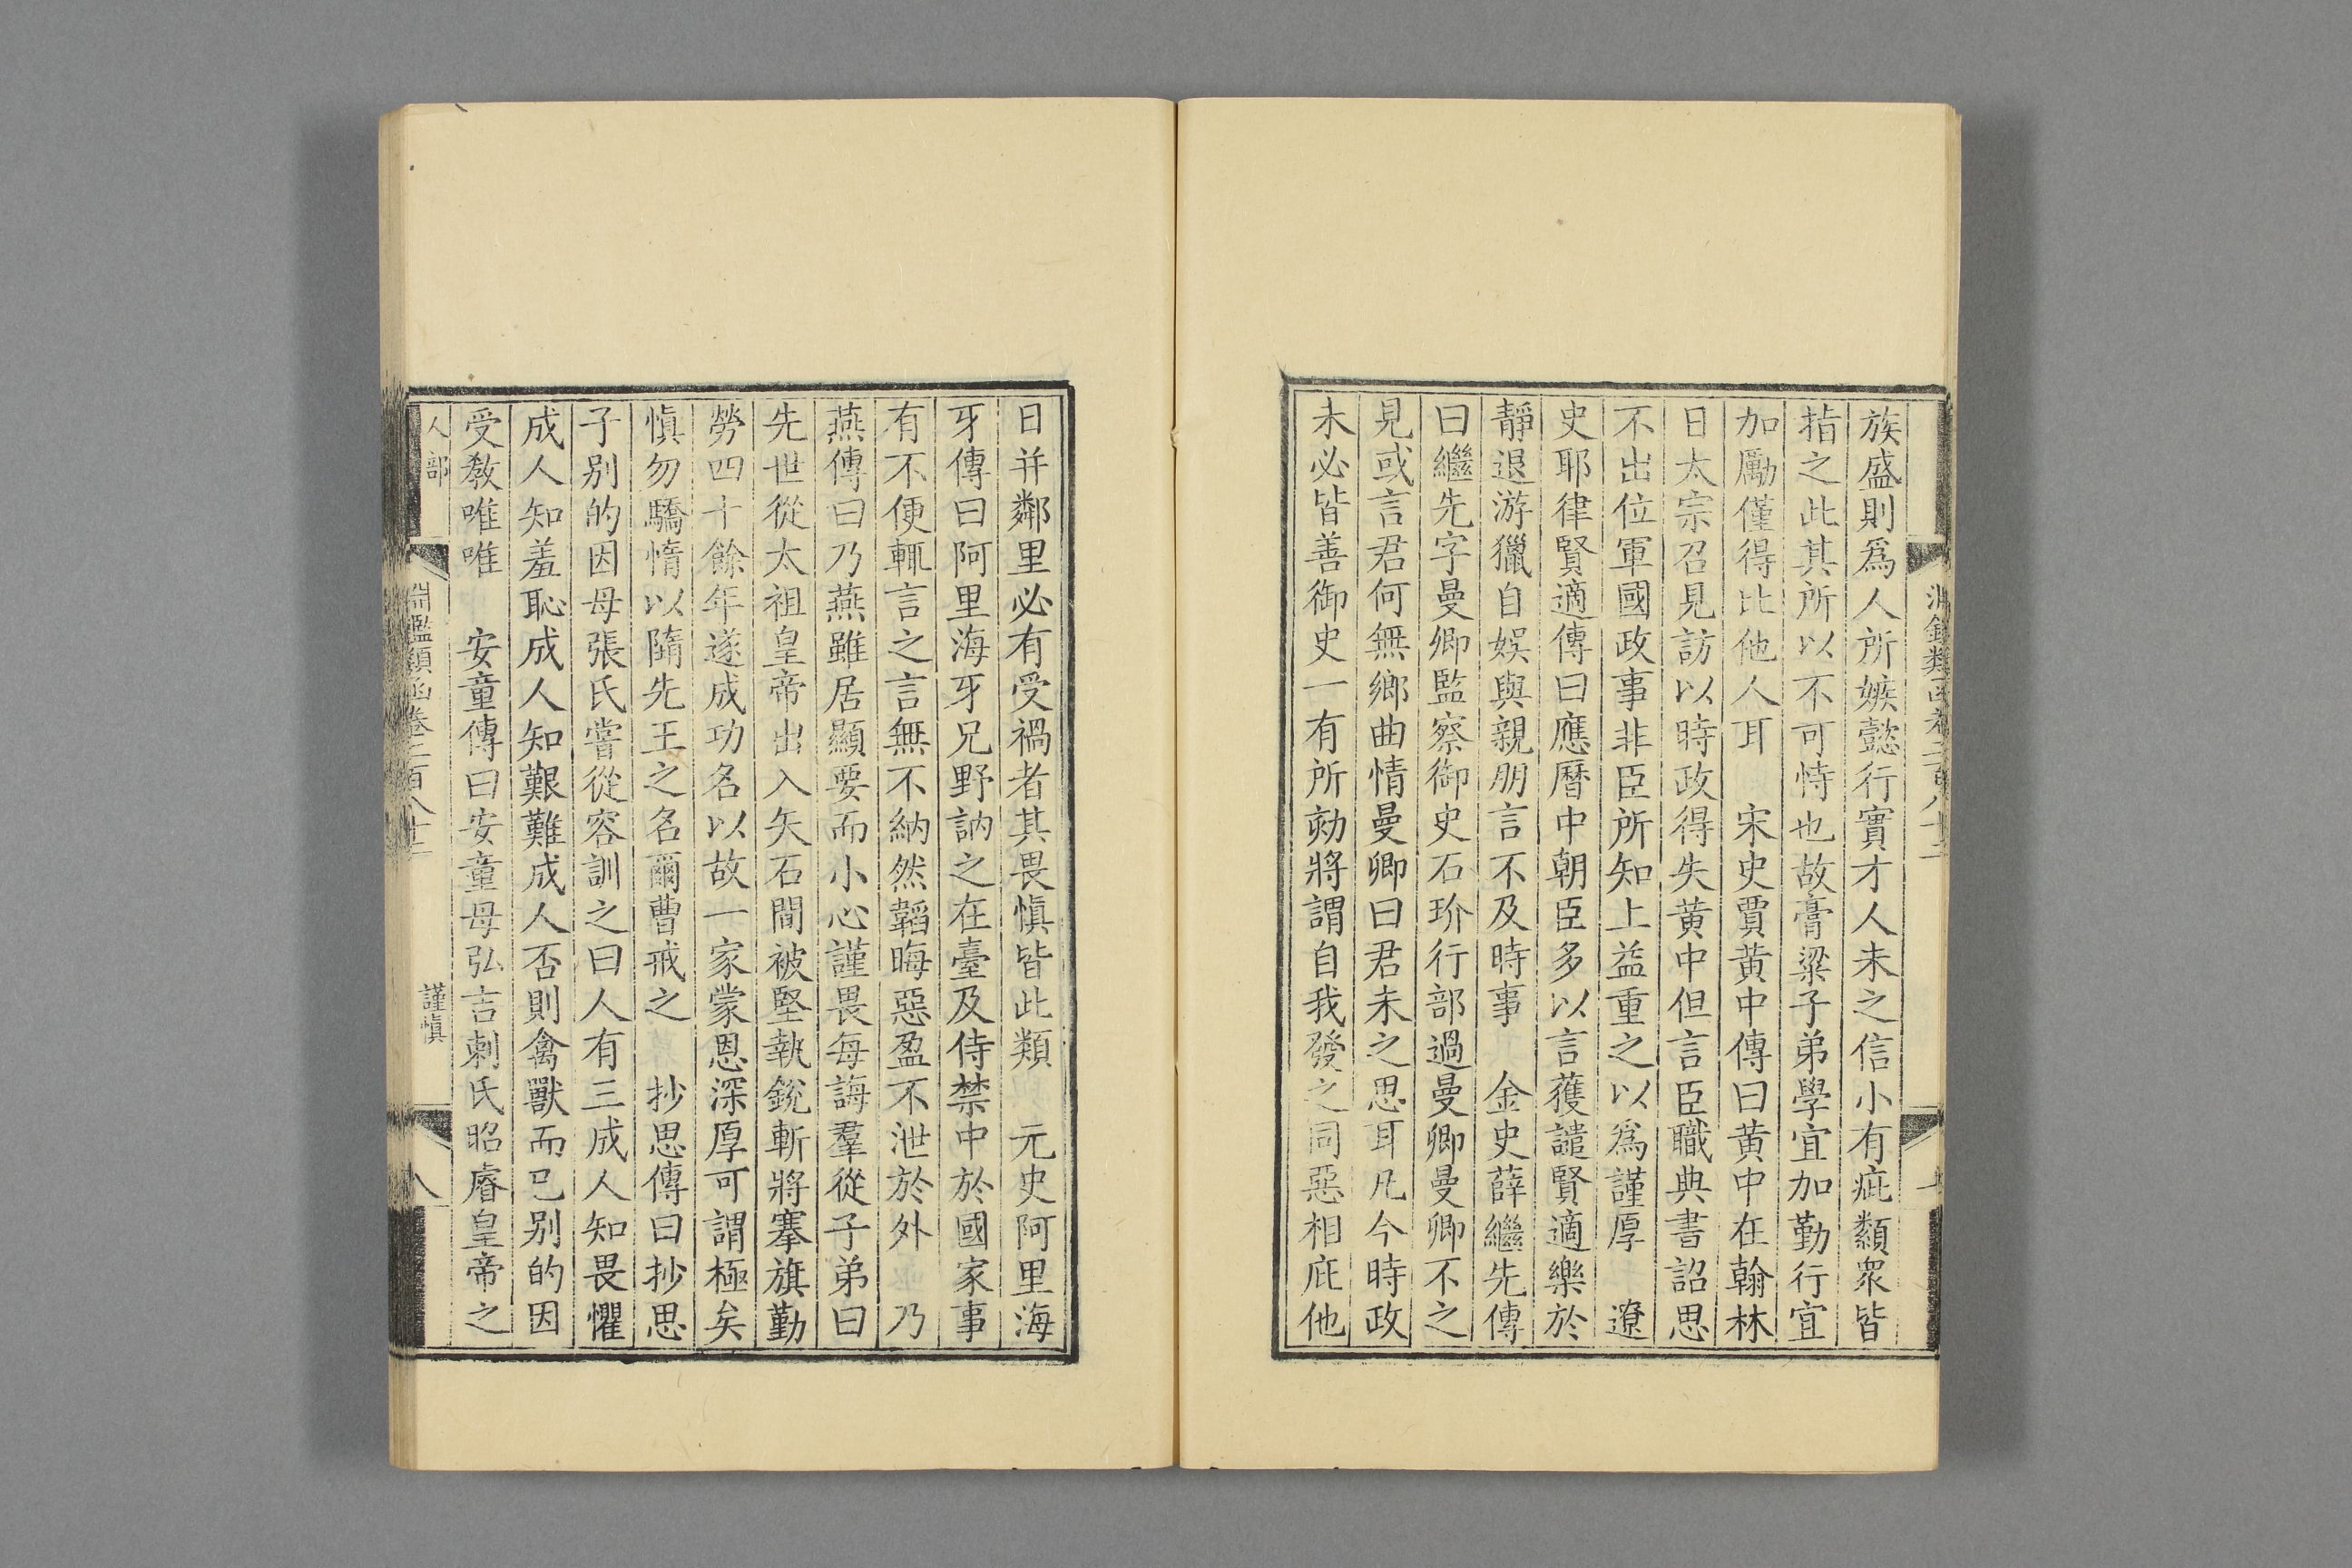 族盛則爲人所嫉懿行實才人未之信小有疵纇衆皆
指之此其所以不可恃也故膏粱子弟學宜加勤行宜
加勵僅得比他人耳　宋史賈黃中傳曰黃中在翰林
日太宗召見訪以時政得失黃中但言臣職典書詔思
不出位軍國政事非臣所知上益重之以爲謹厚　遼
史耶律賢適傳曰應曆中朝臣多以言獲譴賢適樂於
靜退游獵自娛與親朋言不及時事　金史薛繼先傳
曰繼先字曼卿監察御史石玠行部過曼卿曼卿不之
見或言君何無鄉曲情曼卿曰君未之思耳凡今時政
未必皆善御史一有所劾將謂自我發之同惡相庇他
日并鄰里必有受禍者其畏愼皆此類　元史阿里海
牙傳曰阿里海牙兄野訥之在臺及侍禁中於國家事
有不便輒言之言無不納然韜晦惡盈不泄於外　乃
燕傳曰乃燕雖居顯要而小心謹畏每誨羣從子弟曰
先世從太祖皇帝出入矢石間被堅執銳斬將搴旗勤
勞四十餘年遂成功名以故一家蒙恩深厚可謂極矣
愼勿驕惰以隳先王之名爾曹戒之　抄思傳曰抄思
子别的因母張氏嘗從容訓之曰人有三成人知畏懼
成人知羞恥成人知艱難成人否則禽獸而已别的因
受敎唯唯　安童傳曰安童母弘吉剌氏昭睿皇帝之
人部　淵鑑類函卷二百八十二　謹愼　八